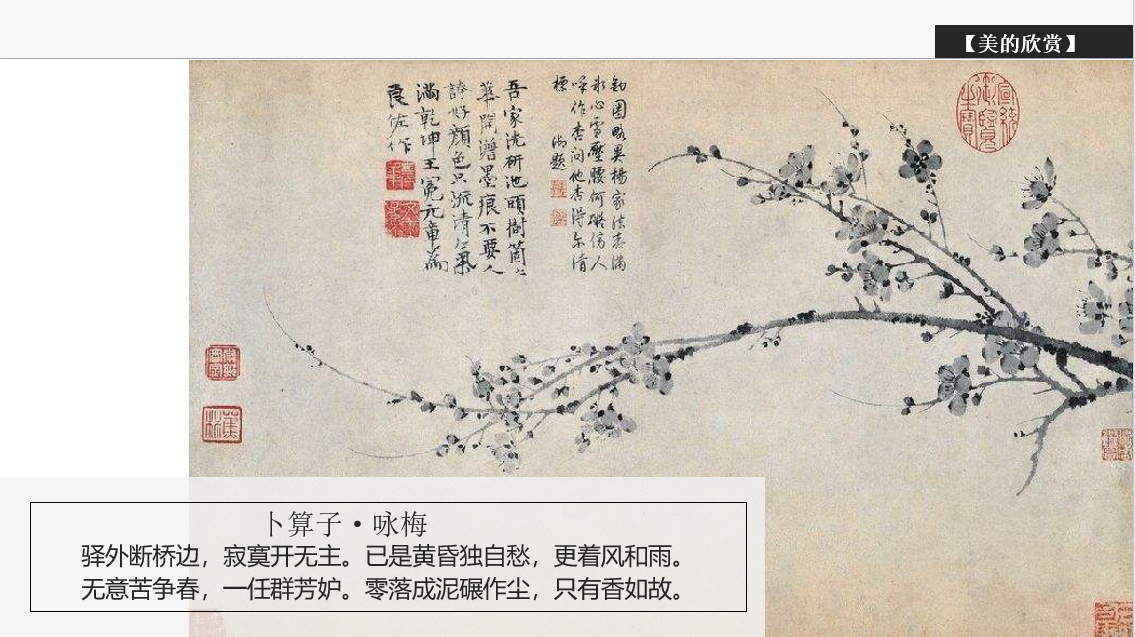 【美的欣赏】
吾家洗研池頭樹箇〻
華開澹墨痕不要人
誇好顏色只流清氣
滿乾坤王冕元章為
良佐作
鈎圈略異楊家法春滿
冰心雪壓腰何礙傍人
唤作杏問他杏得爾清
標
御題
宣統御覽之寶
卜算子·咏梅
驿外断桥边，寂寞开无主。已是黄昏独自愁，更着风和雨。
无意苦争春，一任群芳妒。零落成泥碾作尘，只有香如故。